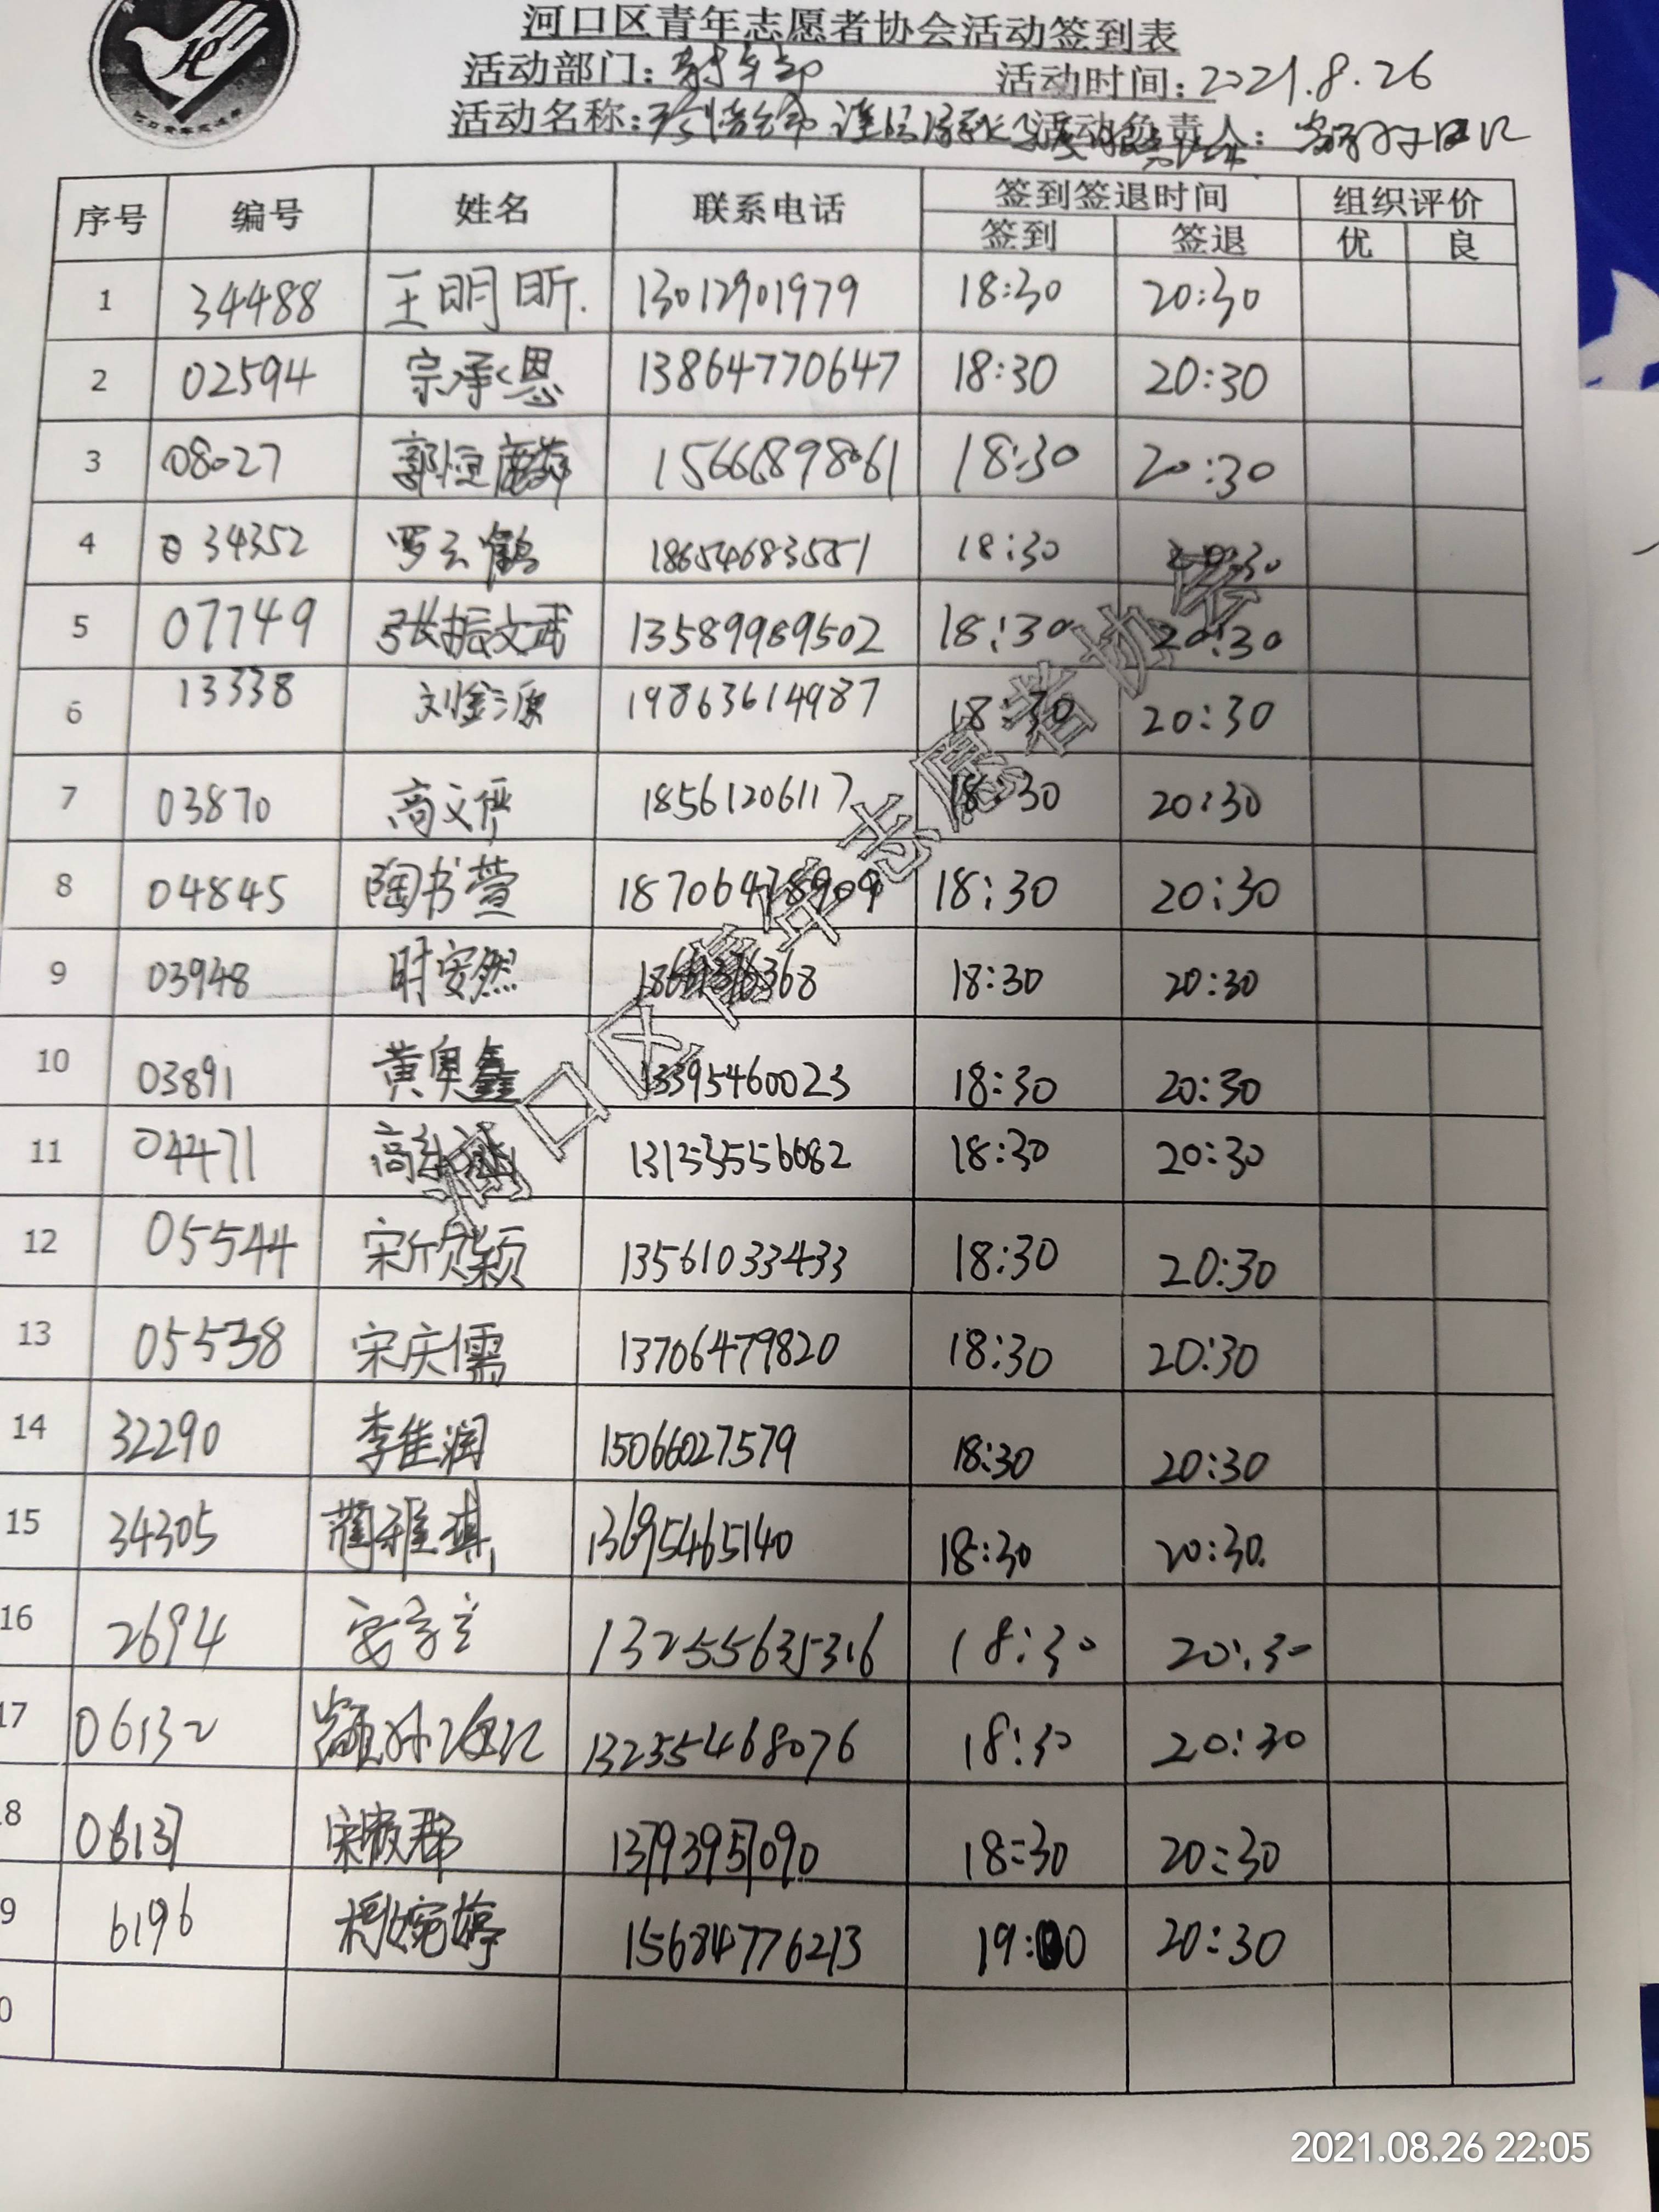 河口区青年志愿者协会活动签到表
活动部门: 活动时间: 2021.8.26
活动名称: 活动负责人:
序号 编号 姓名 联系电话 签到签退时间 组织评价
签到 签退 优 良
1 34488 王明昕 13012901979 18:30 20:30
2 02594 宗承恩 13864770647 18:30 20:30
3 08027 郭恒 15666898061 18:30 20:30
4 34352 罗云鹤 18654683551 18:30 20:30
5 07749 张振文武 13589989502 18:30 20:30
6 13338 刘金源 19863614987 18:30 20:30
7 03870 商文 18561206117 18:30 20:30
8 04845 陶书萱 18706478909 18:30 20:30
9 03948 时安然 18:30 20:30
10 03891 黄奥鑫 13395460023 18:30 20:30
11 04471 高 18:30 20:30
12 05544 宋欣颖 13561033433 18:30 20:30
13 05538 宋庆儒 13706479820 18:30 20:30
14 32290 李佳润 15066027579 18:30 20:30
15 34305 蔺雅琪 13695465140 18:30 20:30
16 2694 18:30 20:30
17 06132 13255468076 18:30 20:30
18 06137 宋 13793957090 18:30 20:30
19 6196 婉婷 15684776213 19:00 20:30
河口区青年志愿者协会
2021.08.26 22:05